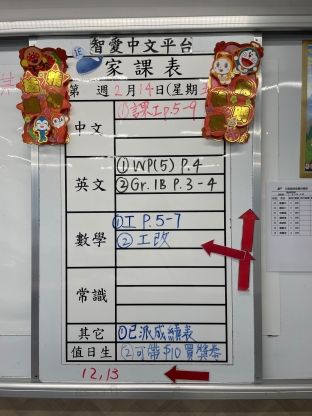 智愛中文平台
家課表
第 週 2月14日(星期五
中文 ①課工p.5-9
英文 ① WP(5) P.4
② Gr. 1B P.3-4
數學 ①工 P.5-7
② 工改
常識
其它 ①已派成績表
值日生 ②可帶$10買獎券
12,13